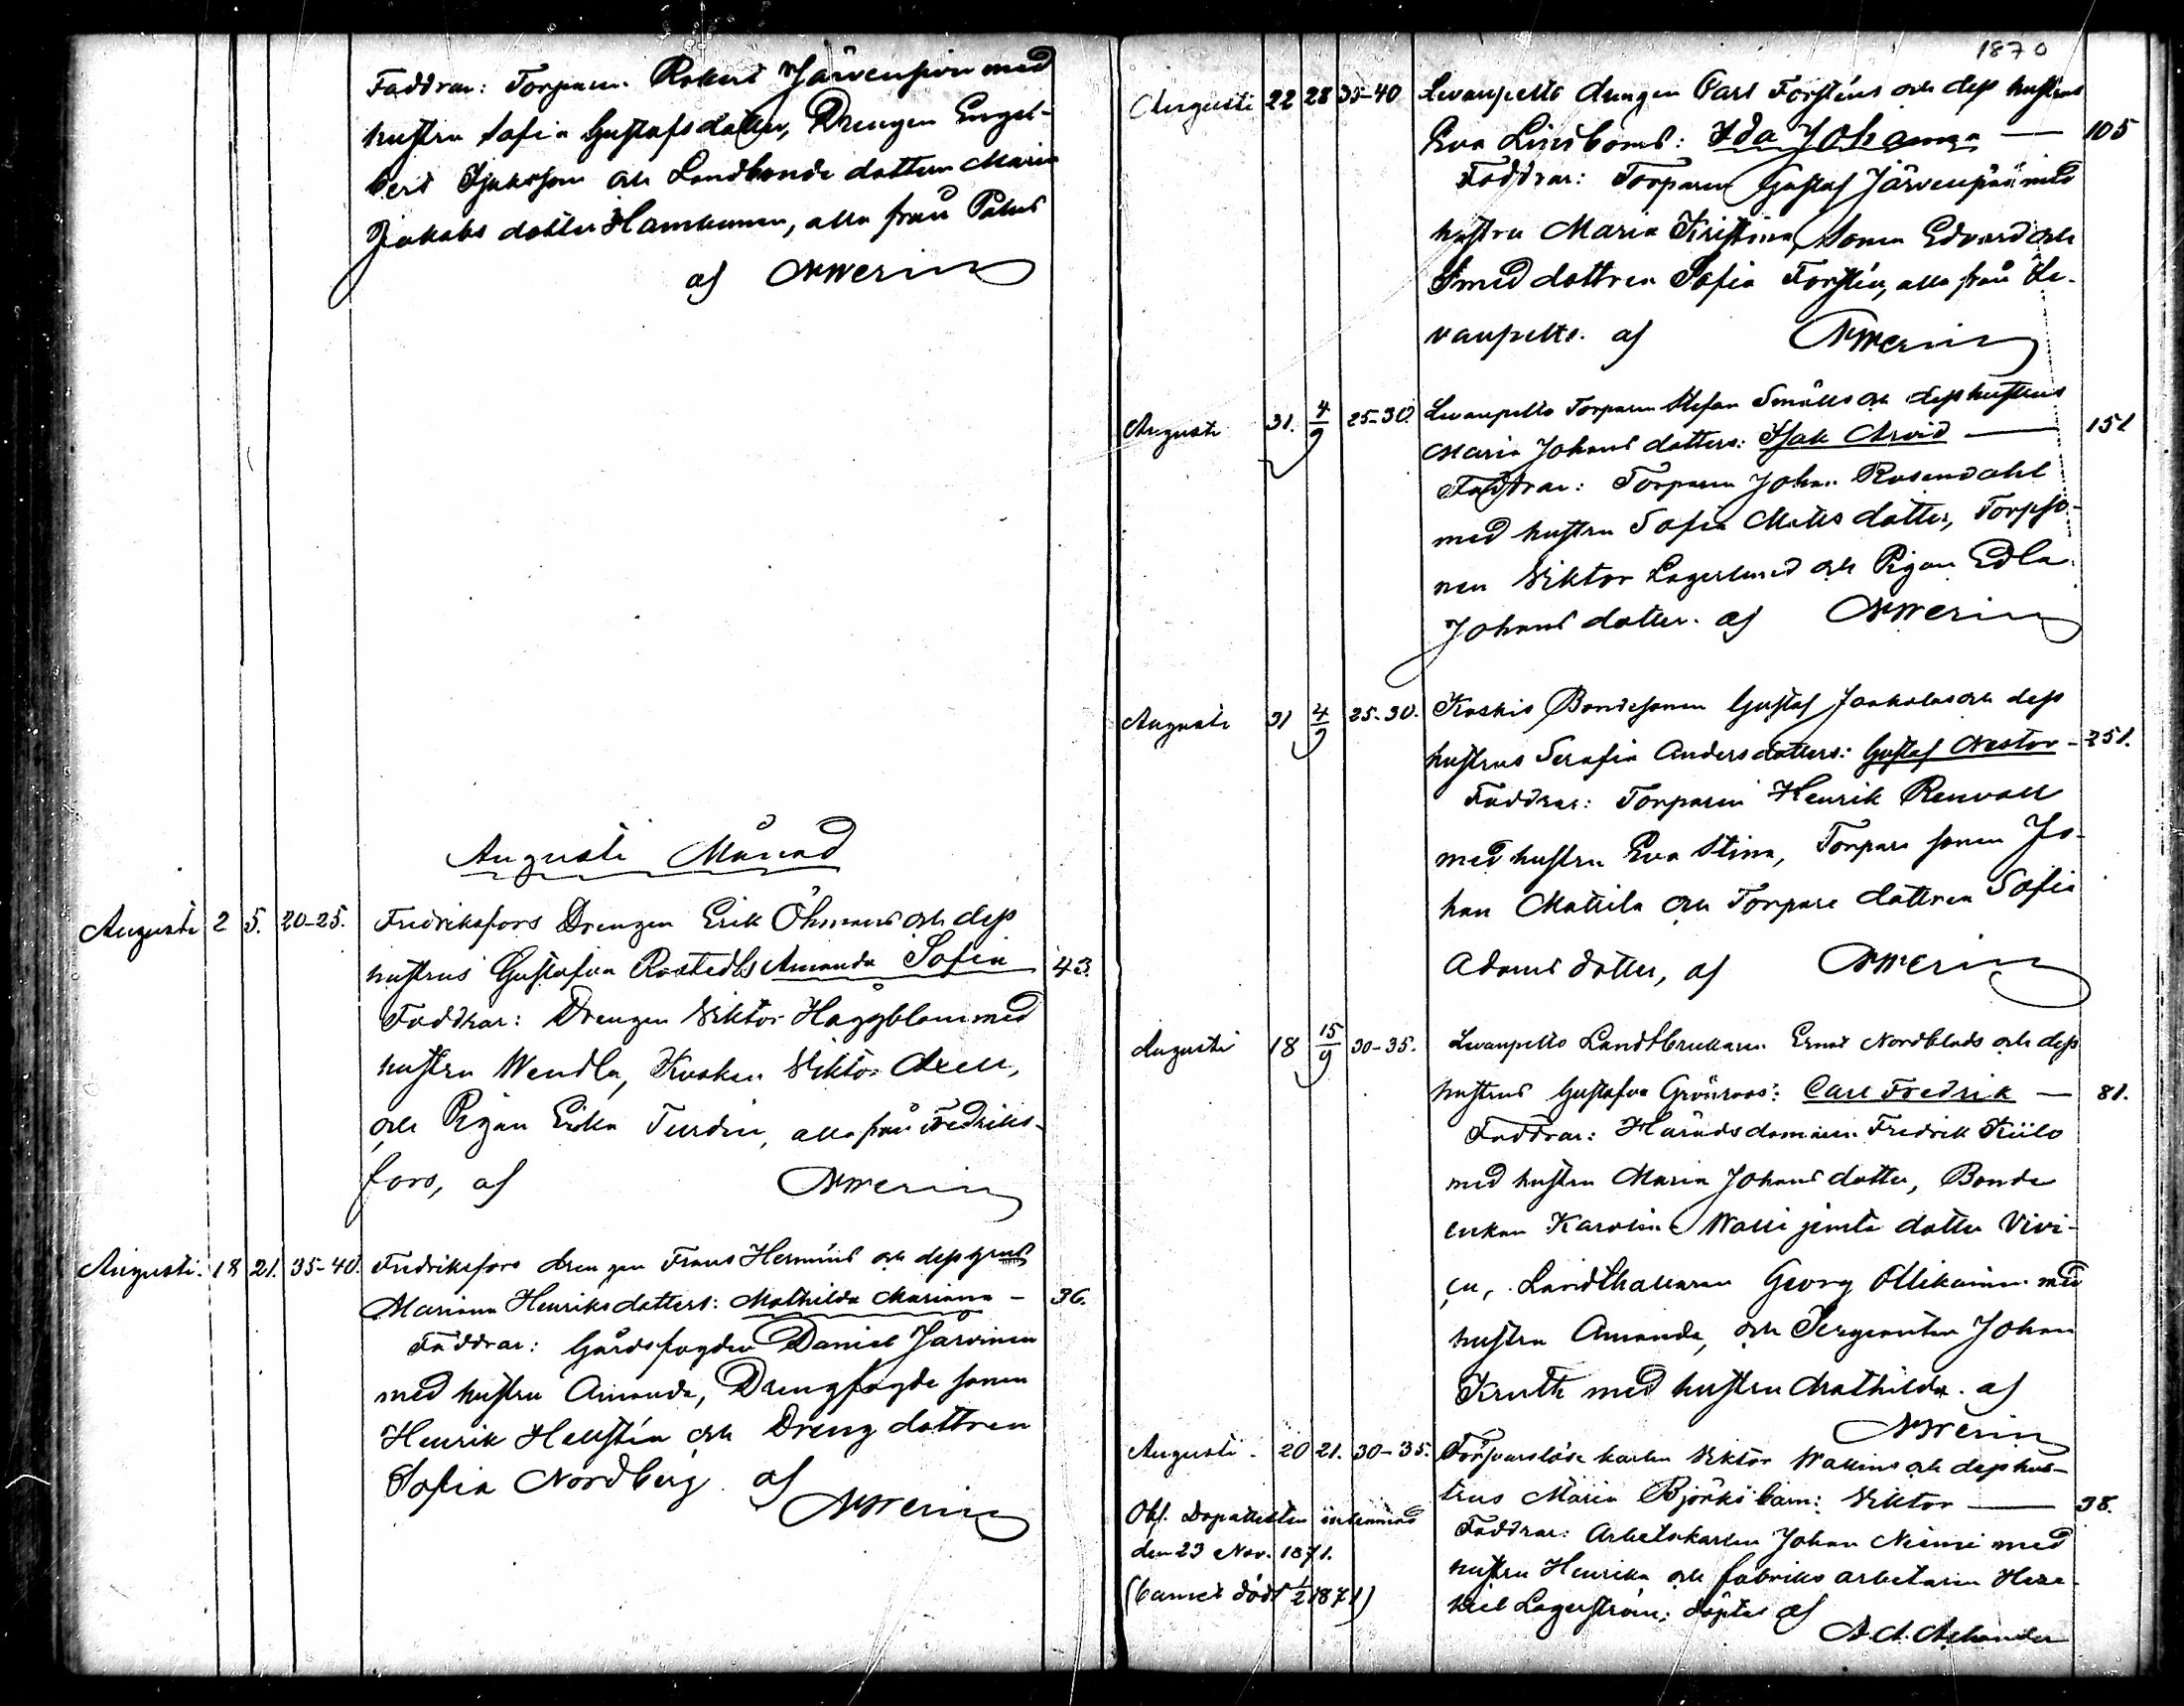 Faddrar: Torparen Robert Järvenpää med
hustru Sofia Gustafsdotter, Drengen Engel-
bert Isaksson och Landbonde dottren Maria
Jakobsdotter Hamkunen, alla från Palus
af NWerin
Augusti Månad
Augusti 2 5. 20-25. Fredriksfors Drengen Erik Öhmans och dess
hustrus Gustafva Rostedts Amanda Sofia 43.
Faddrar: Drengen Viktor Häggblom med
hustru Wendla, Kusken Viktor Axell,
och Pigan Erika Turdin, alla från Fredriks-
fors, af NWerin
Augusti. 18 21. 35-40. Fredriksfors drengen Frans Hermíns och dess hustrus
Mariana Henriksdotters: Mathilda Mariana - 36.
Faddrar: Gårdsfogden Daniel Järvinen
med hustru Amanda, Drengfogde sonen
Henrik Hellstén och Dreng dottren
Sofia Nordberg af
NWerin
1870
Augusti 22 28 35-40 Levanpelto drengen Carl Forsténs och dess hustrus
Eva Lindboms: Ida Johanna — 105
Faddrar: Torparen Gustaf Järvenpää med
hustru Maria Kristina, Sonen Edvard och
Smed dottren Sofia Forstén, alla från Le-
vanpelto. af NWerin
Augusti 31. 4/9 25-30. Levanpelto Torparen Stefan Smälls och dess hustrus
Maria Johansdotters: Isak Arvid — 151
Faddrar: Torparen Johan Rosendahl
med hustru Sofia Matts dotter, Torpso-
nen Viktor Lagerlund och Pigan Edla
Johans dotter. af NWerin
Augusti 31 4/9 25-30. Koskis Bondesonen Gustaf Jaakolas och dess
hustrus Serafia Andersdotters: Gustaf Nestor - 251.
Faddrar: Torparen Henrik Renvall
med hustru Eva Stina, Torpare sonen Jo-
han Mattila och Torpare dottren Sofia
Adams dotter, af NWerin
Augusti 18 15/9 30-35. Levanpelto Landtbrukaren Ernst Nordblads och dess
hustrus Gustafva Grönroos: Carl Fredrik — 81.
Faddrar: Häradsdomaren Fredrik Kiilo
med hustru Maria Johansdotter, Bonde
enkan Karolina Walli jemte dotter Vivi-
ca, Landthallaren Georg Ollikainen med
hustru Amanda, och Sergeanten Johan
Kruth med hustru Mathilda. af
NWerin
Augusti - 20 21. 30-35. Försvarslöse karlen Viktor Wallins och dess hus-
trus Maria Björks barn: Viktor — 38.
Obs. Dopattesten inlemnad
den 23 Nov. 1871.
(barnet dödt 1/2 1871)
Faddrar: Arbetskarlen Johan Niemi med
hustru Henrika och fabriks arbetaren Hese-
kiel Lagerström; döptes af
A. A. Ashander